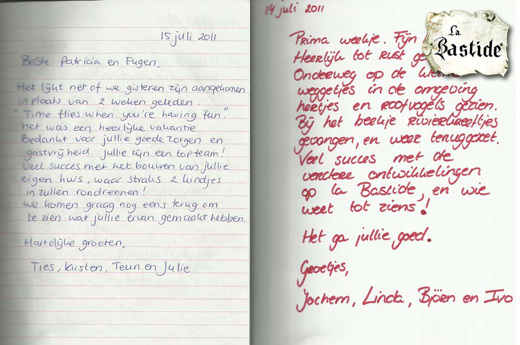 15 juli 2011
Beste Patricia en Eugen,
Het lijkt net of we gisteren zijn aangekomen
in plaats van 2 weken geleden.
"Time flies when you're having fun."
Het was een heerlijke vakantie.
Bedankt voor jullie goede zorgen en
gastvrijheid. Jullie zijn een topteam!
Veel succes met het bouwen van jullie
eigen huis, waar straks 2 kindjes
in zullen rondrennen!
We komen graag nog eens terug om
te zien wat jullie ervan gemaakt hebben.
Hartelijke groeten,
Ties, Kirsten, Teun en Julie
14 juli 2011
Prima weekje. Fijn
Heerlijk tot rust
Onderweg op de
weggetjes in de omgeving
hertjes en roofvogels gezien.
Bij het beekje rivierkreeftjes
gevangen, en weer teruggezet.
Veel succes met de
verdere ontwikkelingen
op la Bastide, en wie
weet tot ziens!
Het ga jullie goed.
Groetjes,
Jochem, Linda, Björn en Ivo
La
Bastide